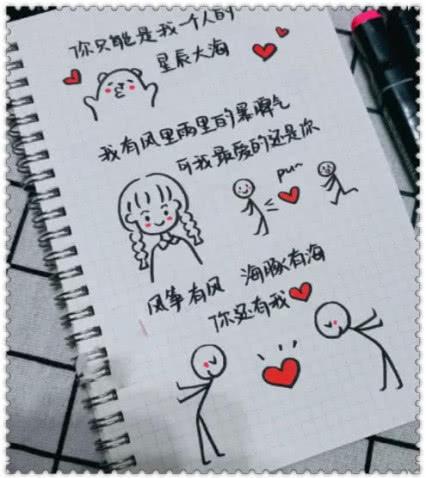 你只能是我一个人的
星辰大海
我有风里雨里的暴脾气
可我最爱的还是你
pu~
风筝有风 海豚有海
你还有我